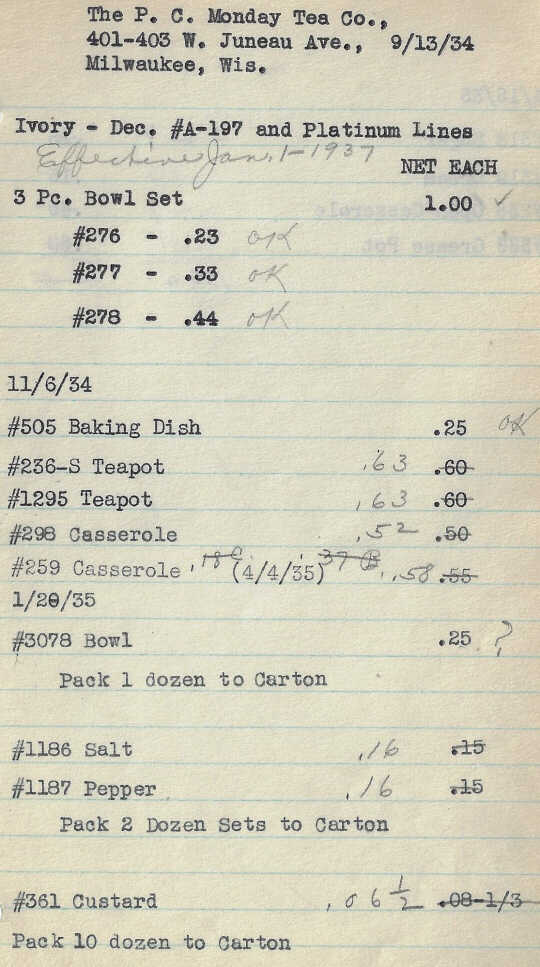 The P. C. Monday Tea Co.,
401-403 W. Juneau Ave., 9/13/34
Milwaukee, Wis.
Ivory - Dec. #A-197 and Platinum Lines
Effective Jan. 1-1937
NET EACH
3 Pc. Bowl Set 1.00 ✓
#276 - .23 OK
#277 - .33 OK
#278 - .44 OK
11/6/34
#505 Baking Dish .25 OK
#236-S Teapot .63 .60
#1295 Teapot .63 .60
#298 Casserole .52 .50
#259 Casserole .18 C (4/4/35) .37 B .58 .55
1/20/35
#3078 Bowl .25 ?
Pack 1 dozen to Carton
#1186 Salt .16 .15
#1187 Pepper .16 .15
Pack 2 Dozen Sets to Carton
#361 Custard .06 1/2 .08-1/3
Pack 10 dozen to Carton